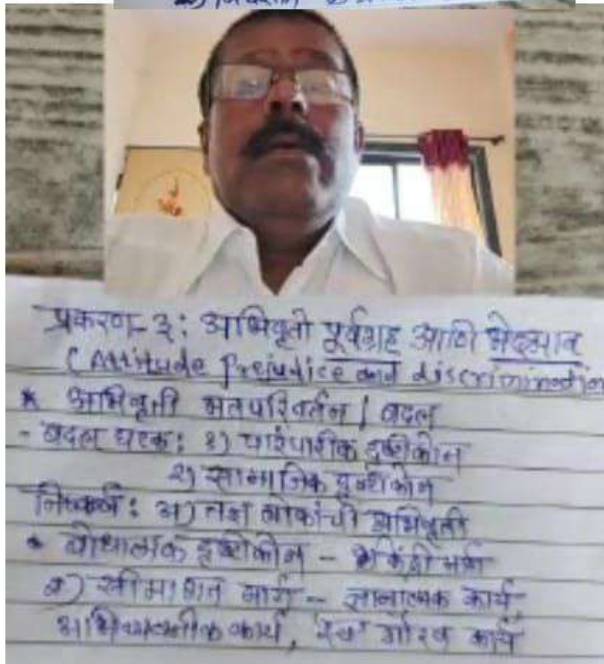 प्रकरण-३: अभिवृत्ती पूर्वग्रह आणि भेदभाव
(Attitude Prejudice and discrimination
* अभिवृत्ती मतपरिवर्तन / बदल
- बदल घटक: १) पारंपारीक दृष्टीकोन
२) सामाजिक दृष्टीकोन
निष्कर्ष: अ) तज्ञ लोकांची अभिवृत्ती
* बोधात्मक दृष्टीकोन - केंद्री मार्ग
२) सीमांगत मार्ग - ज्ञानात्मक कार्य,
अभिव्यक्तीक कार्य, स्व गौरव कार्य